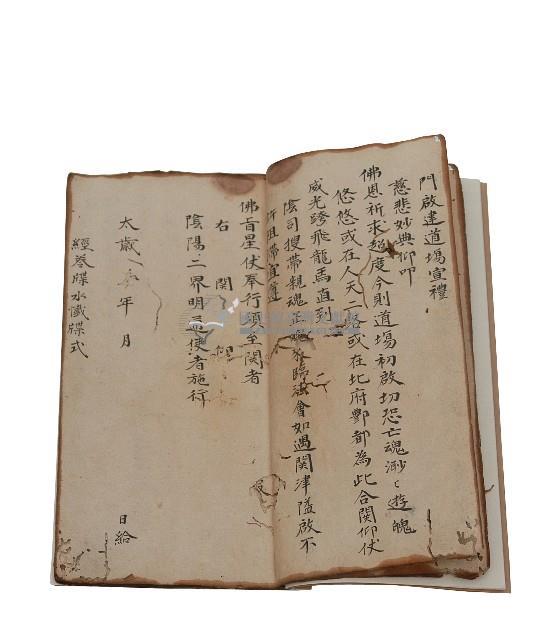 門啟建道場宣禮
慈悲妙典仰叩
佛恩祈求超度今則道場初啟切恐亡魂渺〻遊魄
悠悠或在人天二路或在北府酆都為此合関仰伏
威光跨飛龍馬直到
陰司搜帶親魂正魄來臨法會如遇関津隘啟不
許阻滯宣遵
佛旨星伏奉行須至関者
右関
陰陽二界明使者施行
太歲年月日給
經卷牒水懺牒式